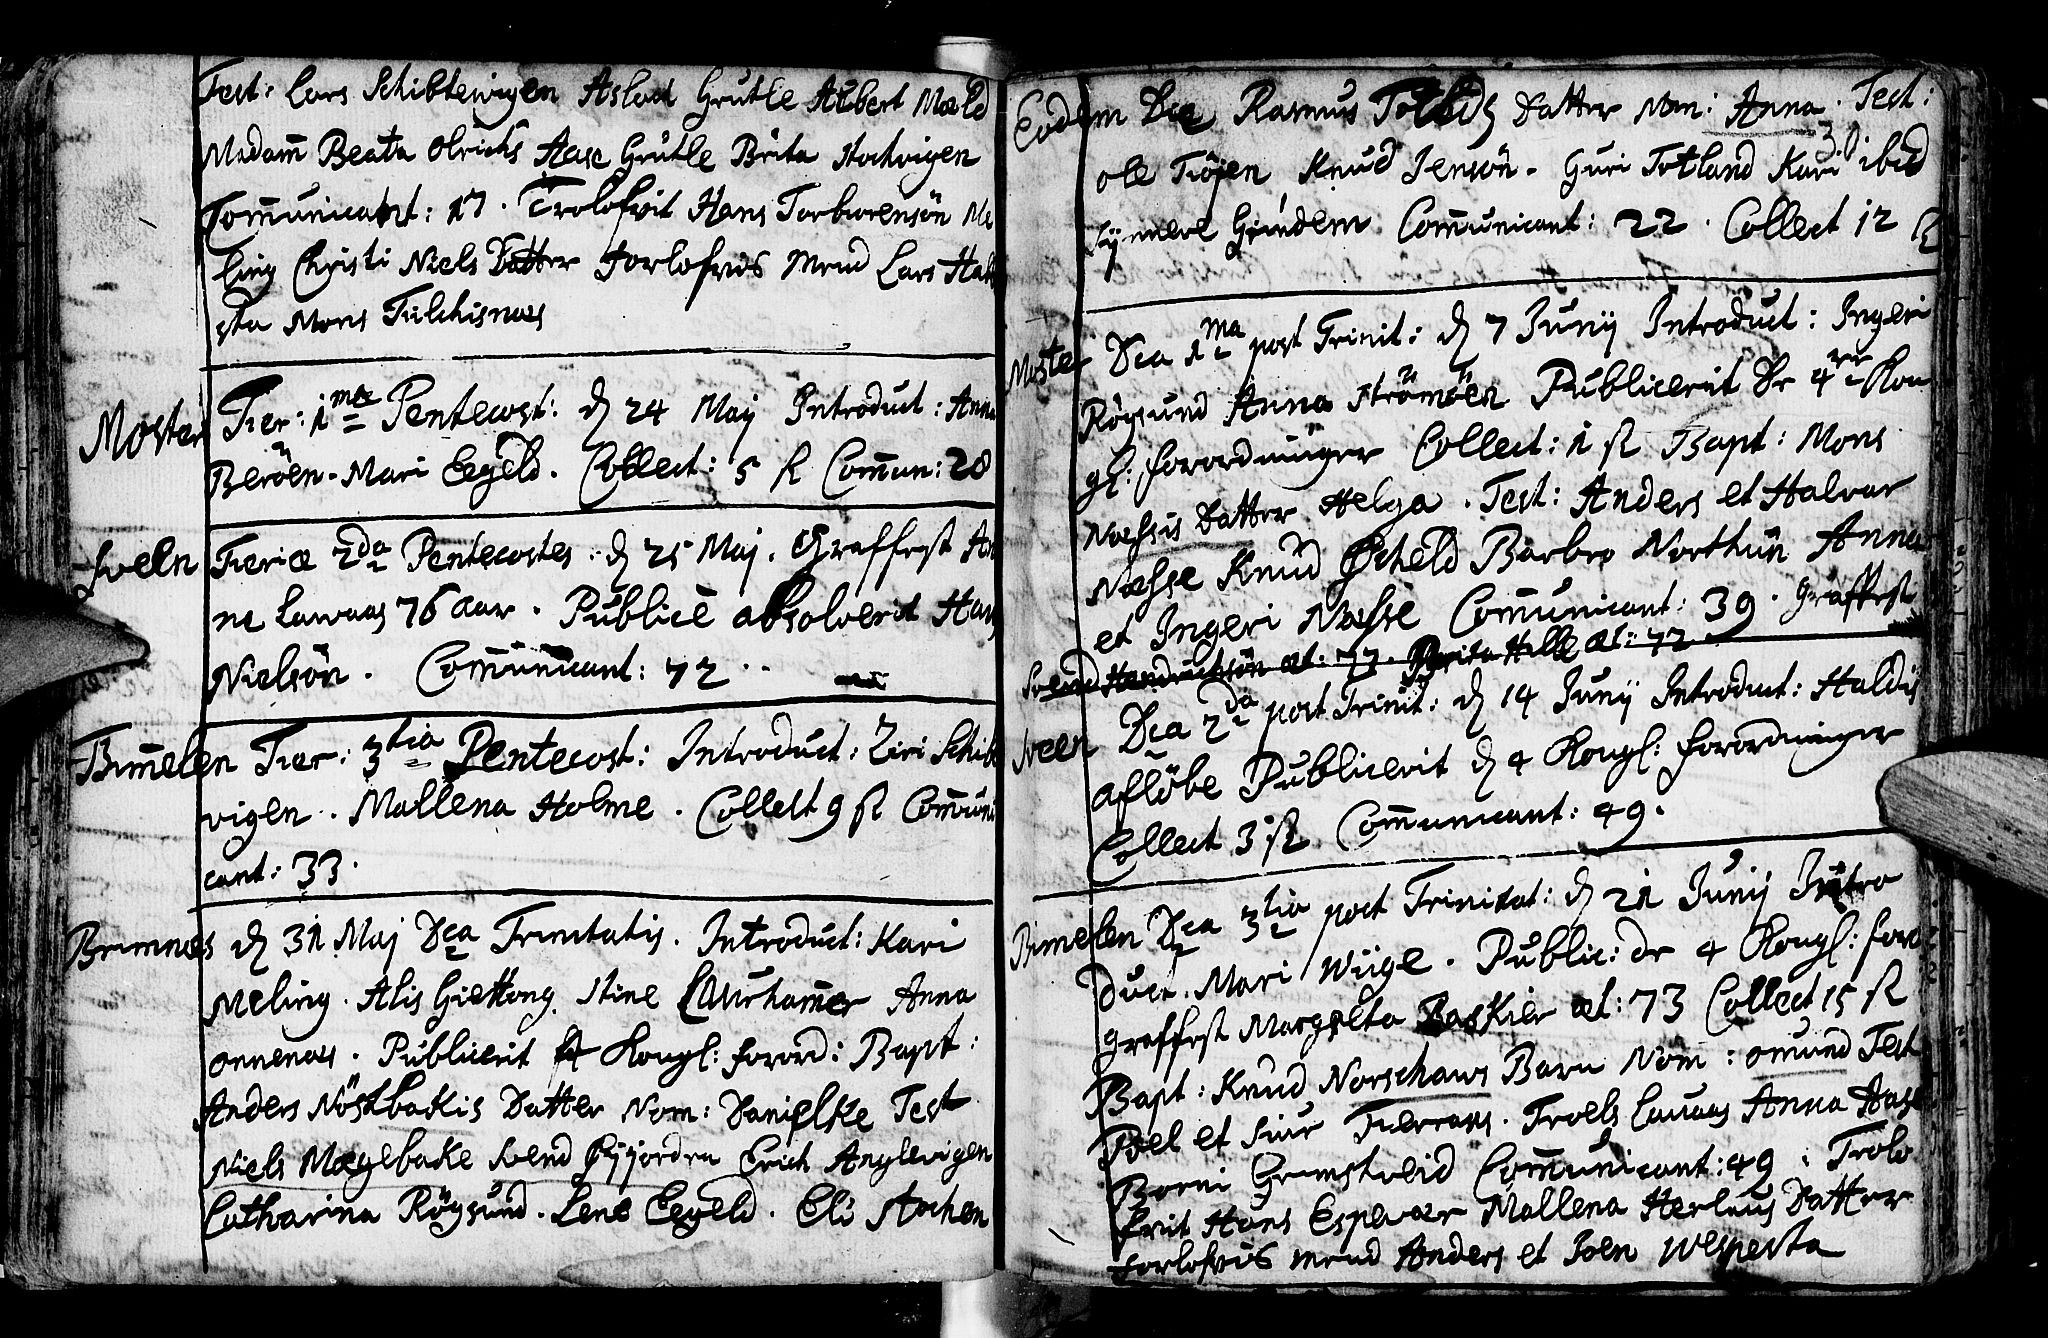 Test: Lars Schibtevigen Aslad Grütle Aübert Mæld
Madam̄ Beata Olrichs Aase Grütle Brita Stochvigen
Com̄unicant: 17. Trolofvit Hans Torbiorensön Me
ling Christi Niels Datter Forlofvis Mend Lars Hals
Mons
Moster Fer: 1ma Pentecost: d 24 Maij Introduct: Anna
Beröen. Mari Eegeld. Collect: 5 ß Com̄un: 28
Sveln Feriæ 2da Pentecostes. d 25 Maj. Graffest An
ne Lavaas 76 aar. Publicè absolverit Hans
Nielsön. Com̄unicant: 72.
Bim̄elen Fer: 3tia Pentecost: Introduct: Ziri Schibt
vigen. Mallena Holme. Collect 9 ß Com̄uni
cant: 33.
Brimnæs d 31 Maj Dca Trinitatis. Introduct: Kari
Meling. Alis Stine Anna
Publicerit 4 Kongl: Forord: Bapt:
Anders Nöstbakis Datter Nom: Danielke Test
Niels Mægebake Svend Erich Anglevigen
Catharina Röysund. Lene Eegeld. Eli Stochen
Eodem Dca Rasmus Datter Nom: Anna. Test:
30
Ole Tiöien Knud Jensön. Guri Totland Kari ibid
Synneve Grindem. Com̄unicant: 22. Collect 12 ß
Moster Dca 1ma post Trinit: d 7 Junij Introduct: Ingeri
Röysund Anna Strömöen Publicerit Dr 4re Kon
gl: Forordninger Collect: 1 ß Bapt: Mons
Næssis Datter Helga. Test: Anders et Halvar
Næsse Knud Barbro Northun Anna
et Ingeri Næsse Com̄unicant: 39. Graffest
Svend Hendrichsön æt: 77. Brita Hille æt: 72
Sveen Dca 2da post Trinit: d 14 Junij Introduct: Haldis
Aflöbe Publicerit d 4 Kongl: Forordninger
Collect 3 ß Com̄unicant: 49.
Bimelen Dca 3tia post Trinitat: d 21 Junij Intro
duct. Mari Wiige. Public: dr 4 Kongl: Foro
Graffest Margreta æt: 73 Collect 15 ß
Bapt: Knud Norschaws Barn Nom: Omund Test
Poel et Siur Troels Lavaas Anna Aase
Borni Grimstveid Com̄unicant: 49. Trolo
fvit Hans Espevær Mallena Herlaus Datter
Forlofvis Mend Anders et Joen Wespesta